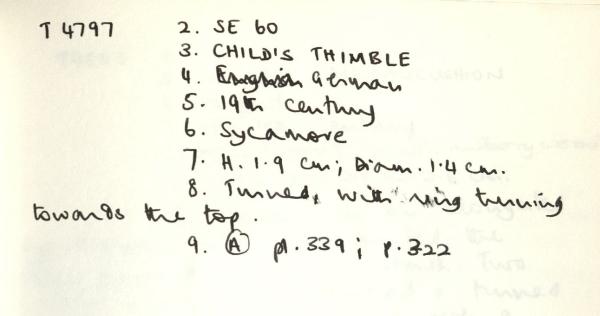 T 4797 2. SE 60
3. CHILD'S THIMBLE
4. English German
5. 19th century
6. Sycamore
7. H. 1.9 cm; Diam. 1.4 cm.
8. Turned, with ring turning
towards the top.
9. (A) pl. 339; p. 322